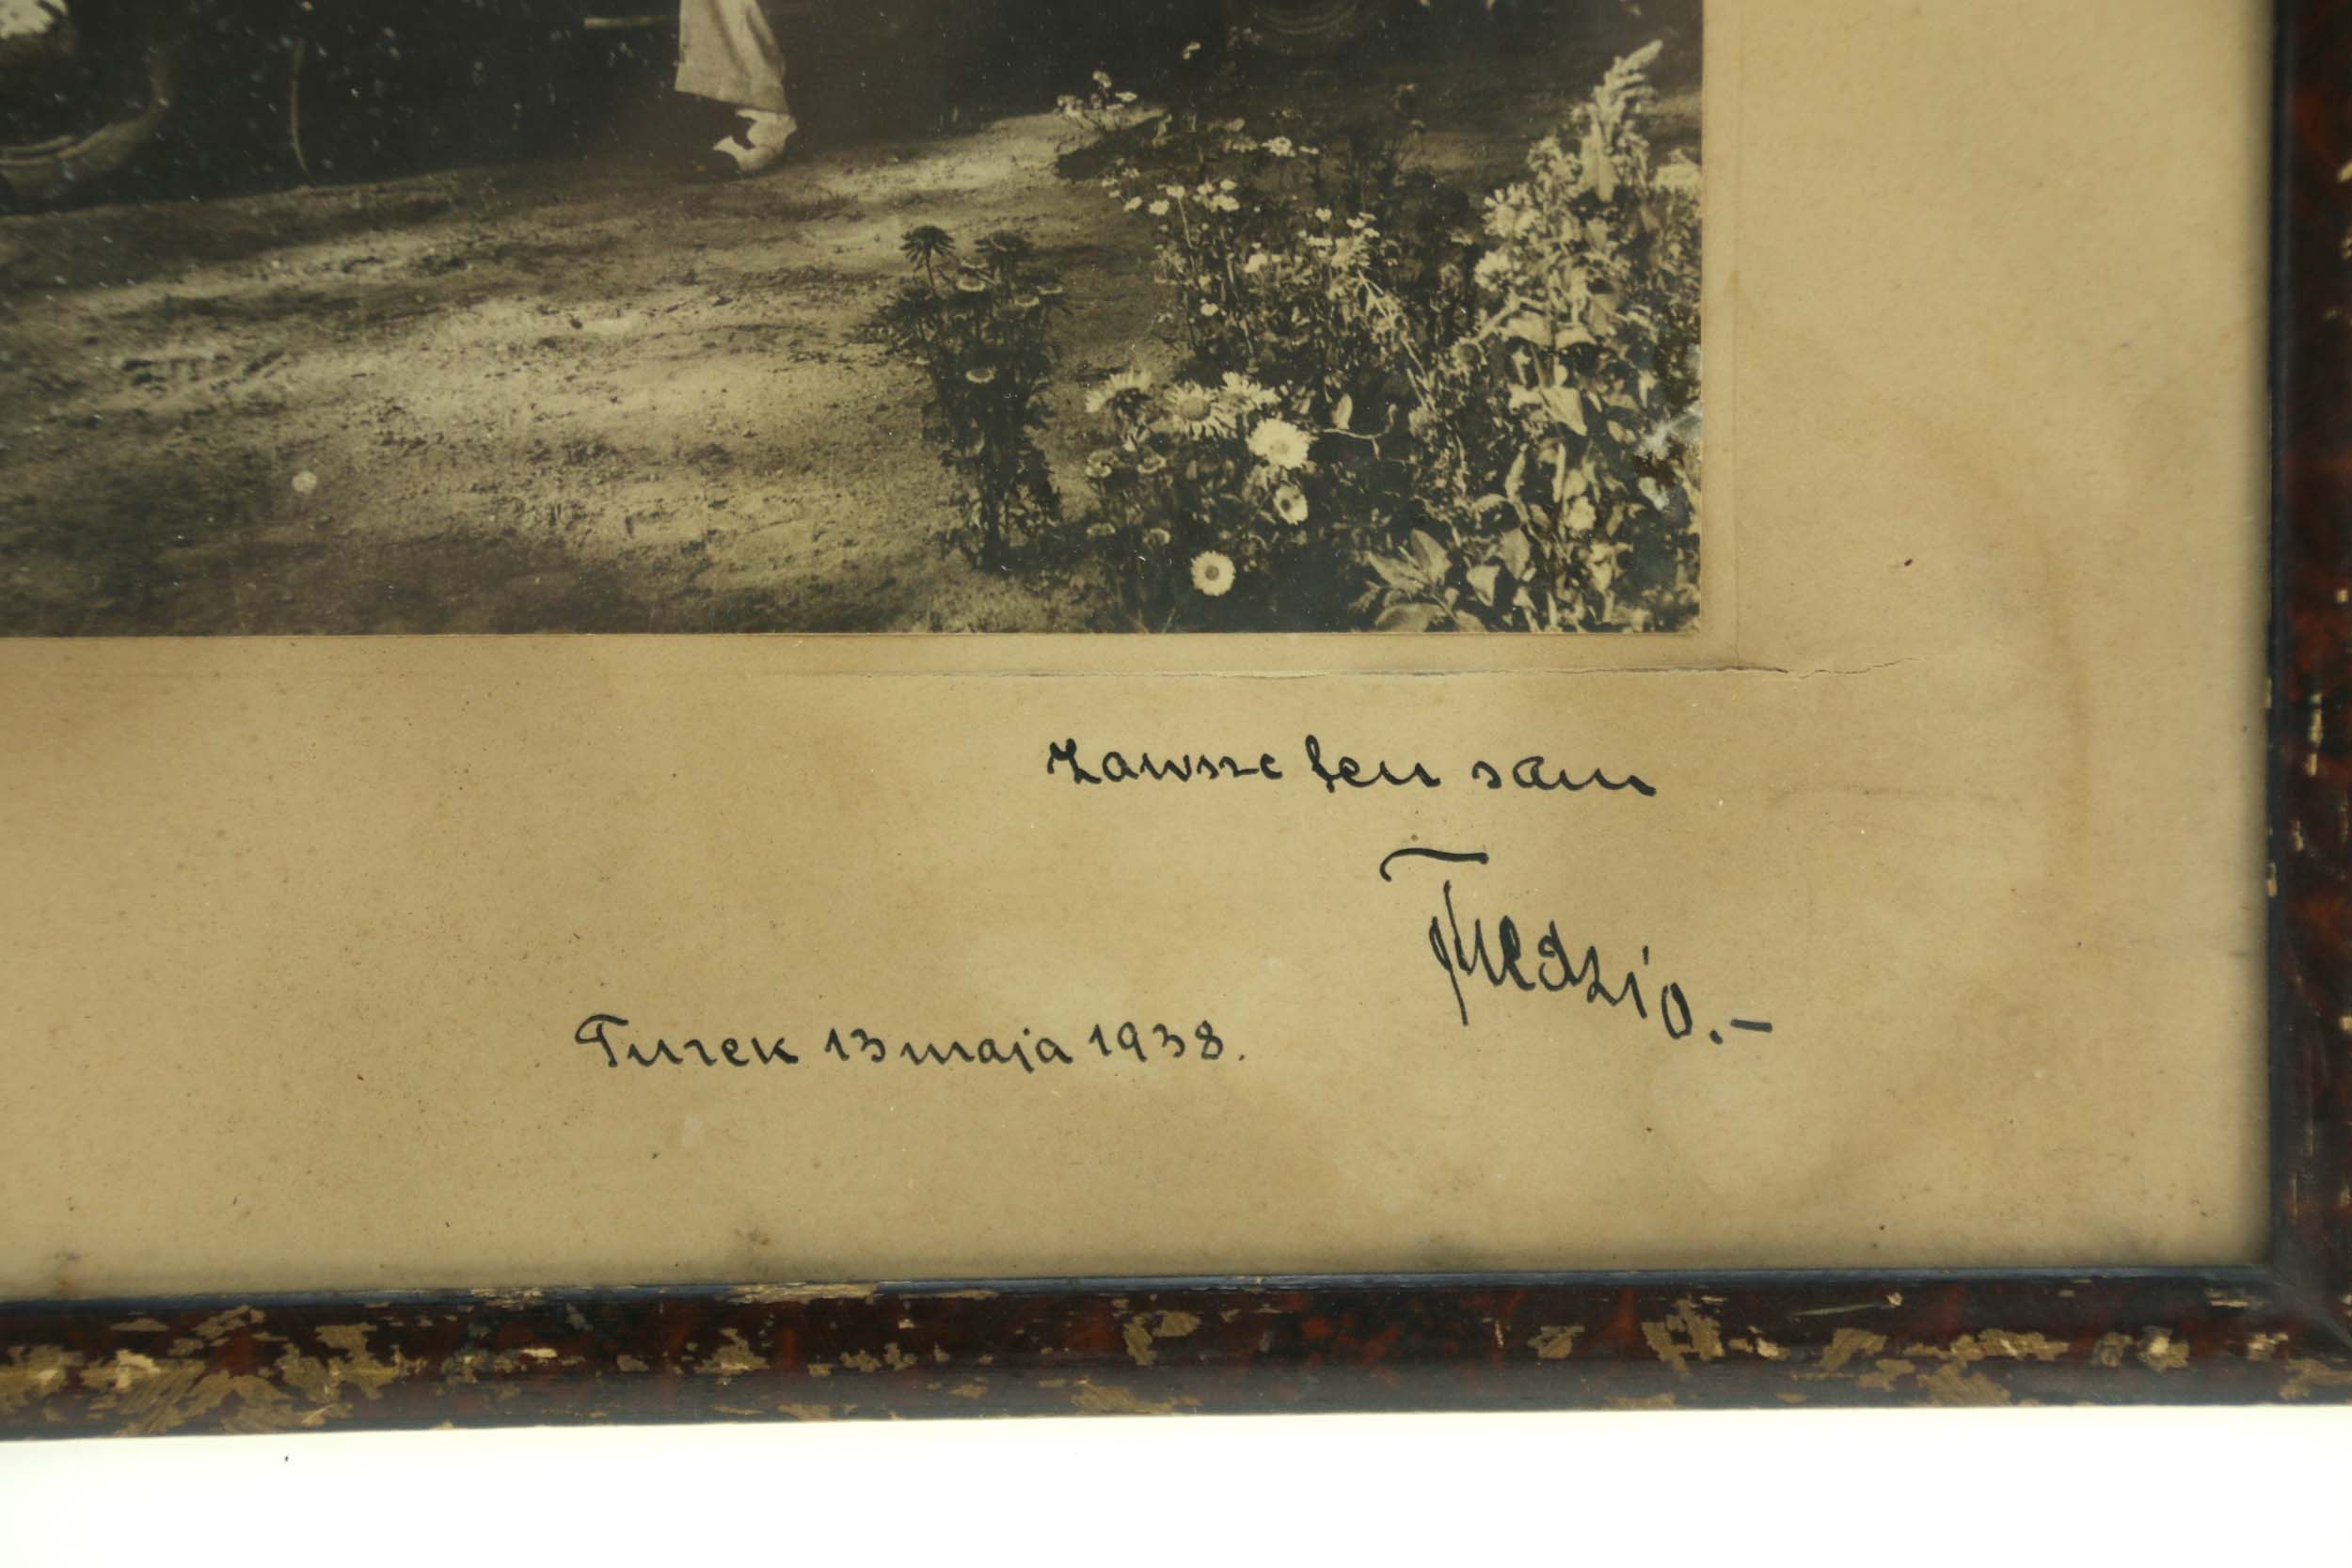 Zawsze ten sam
Fredzio.-
Turek 13 maja 1938.